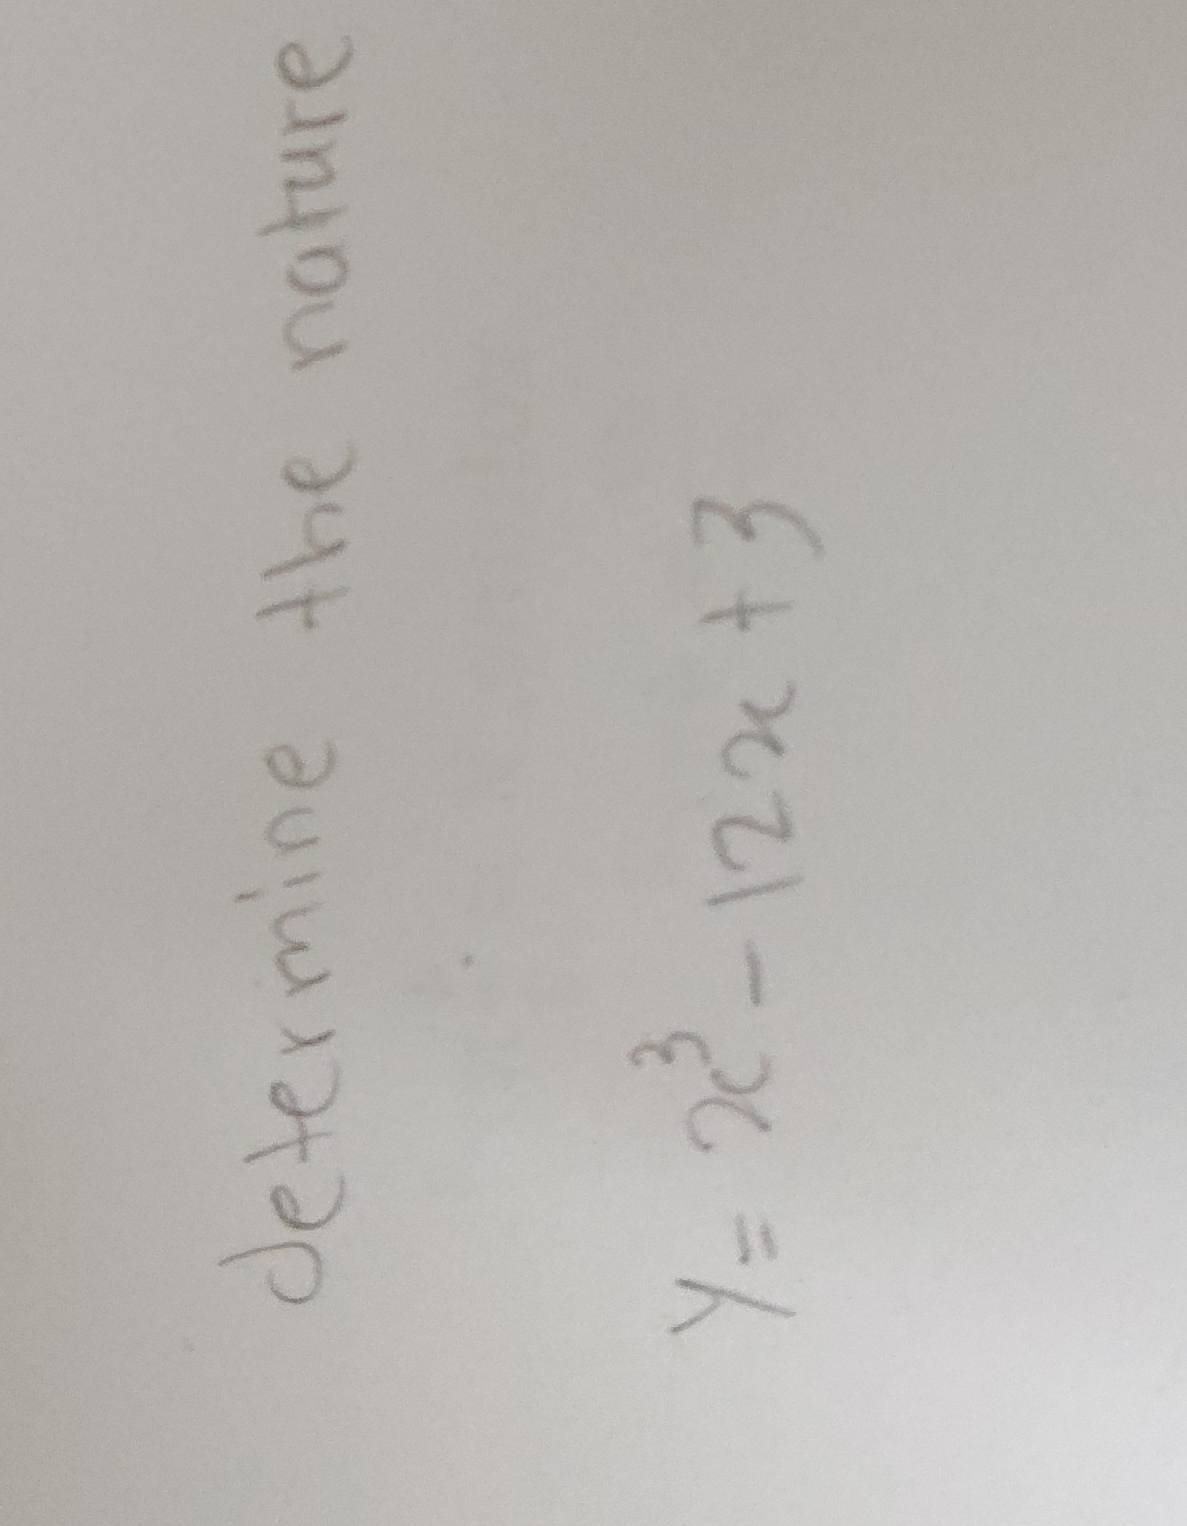 determine the nature
y = x³ - 12x + 3